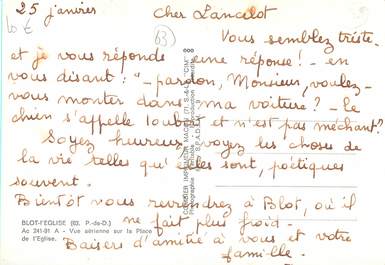 25 janvier
10 €
63
Cher Lancelot
Vous semblez triste.
et je vous réponds une réponse! - en
vous disant : "- pardon, Monsieur, voulez-
vous monter dans ma voiture? - Le
chien s'appelle Loubert et n'est pas méchant?
Soyez heureux, voyez les choses de
la vie telles qu'elles sont, poétiques
souvent.
Bientôt vous reviendrez à Blot, où il
ne fait plus froid.
Baisers d'amitié à vous et votre
famille.
BLOT-l'EGLISE (63. P.-de-D.)
Ac 241-91 A - Vue aérienne sur la Place
de l'Eglise.
COMBIER IMPRIMEUR MACON (71. S.-&-L.) "CIM"